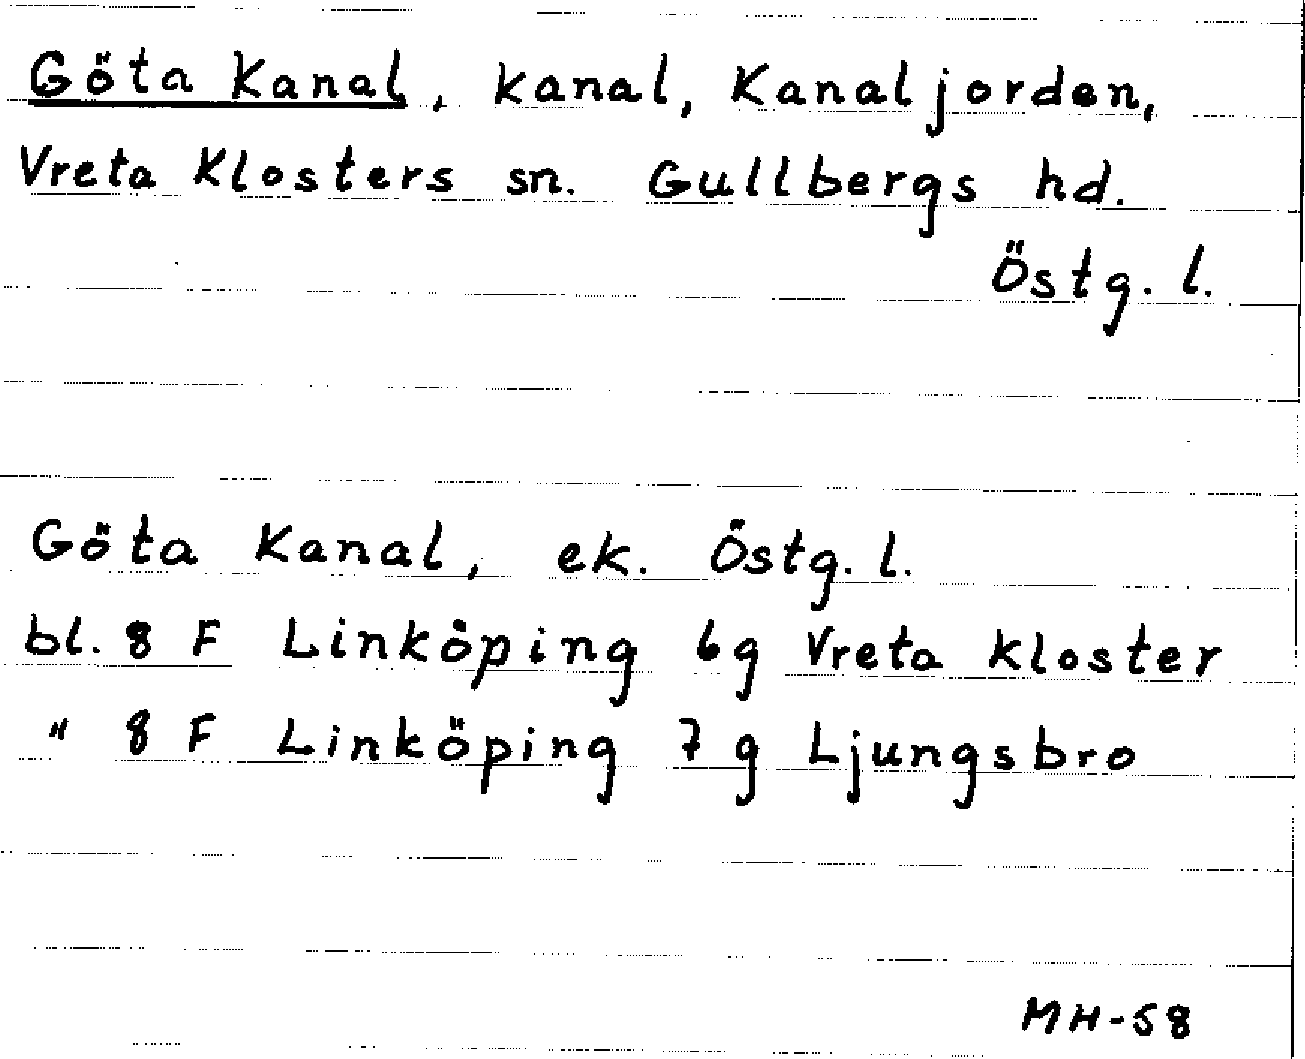 Göta Kanal, kanal, Kanaljorden,
Vreta Klosters sn. Gullbergs hd.
Östg. l.
Göta Kanal, ek. Östg. l.
bl. 8 F Linköping 6g Vreta kloster
" 8 F Linköping 7g Ljungsbro
MH-58